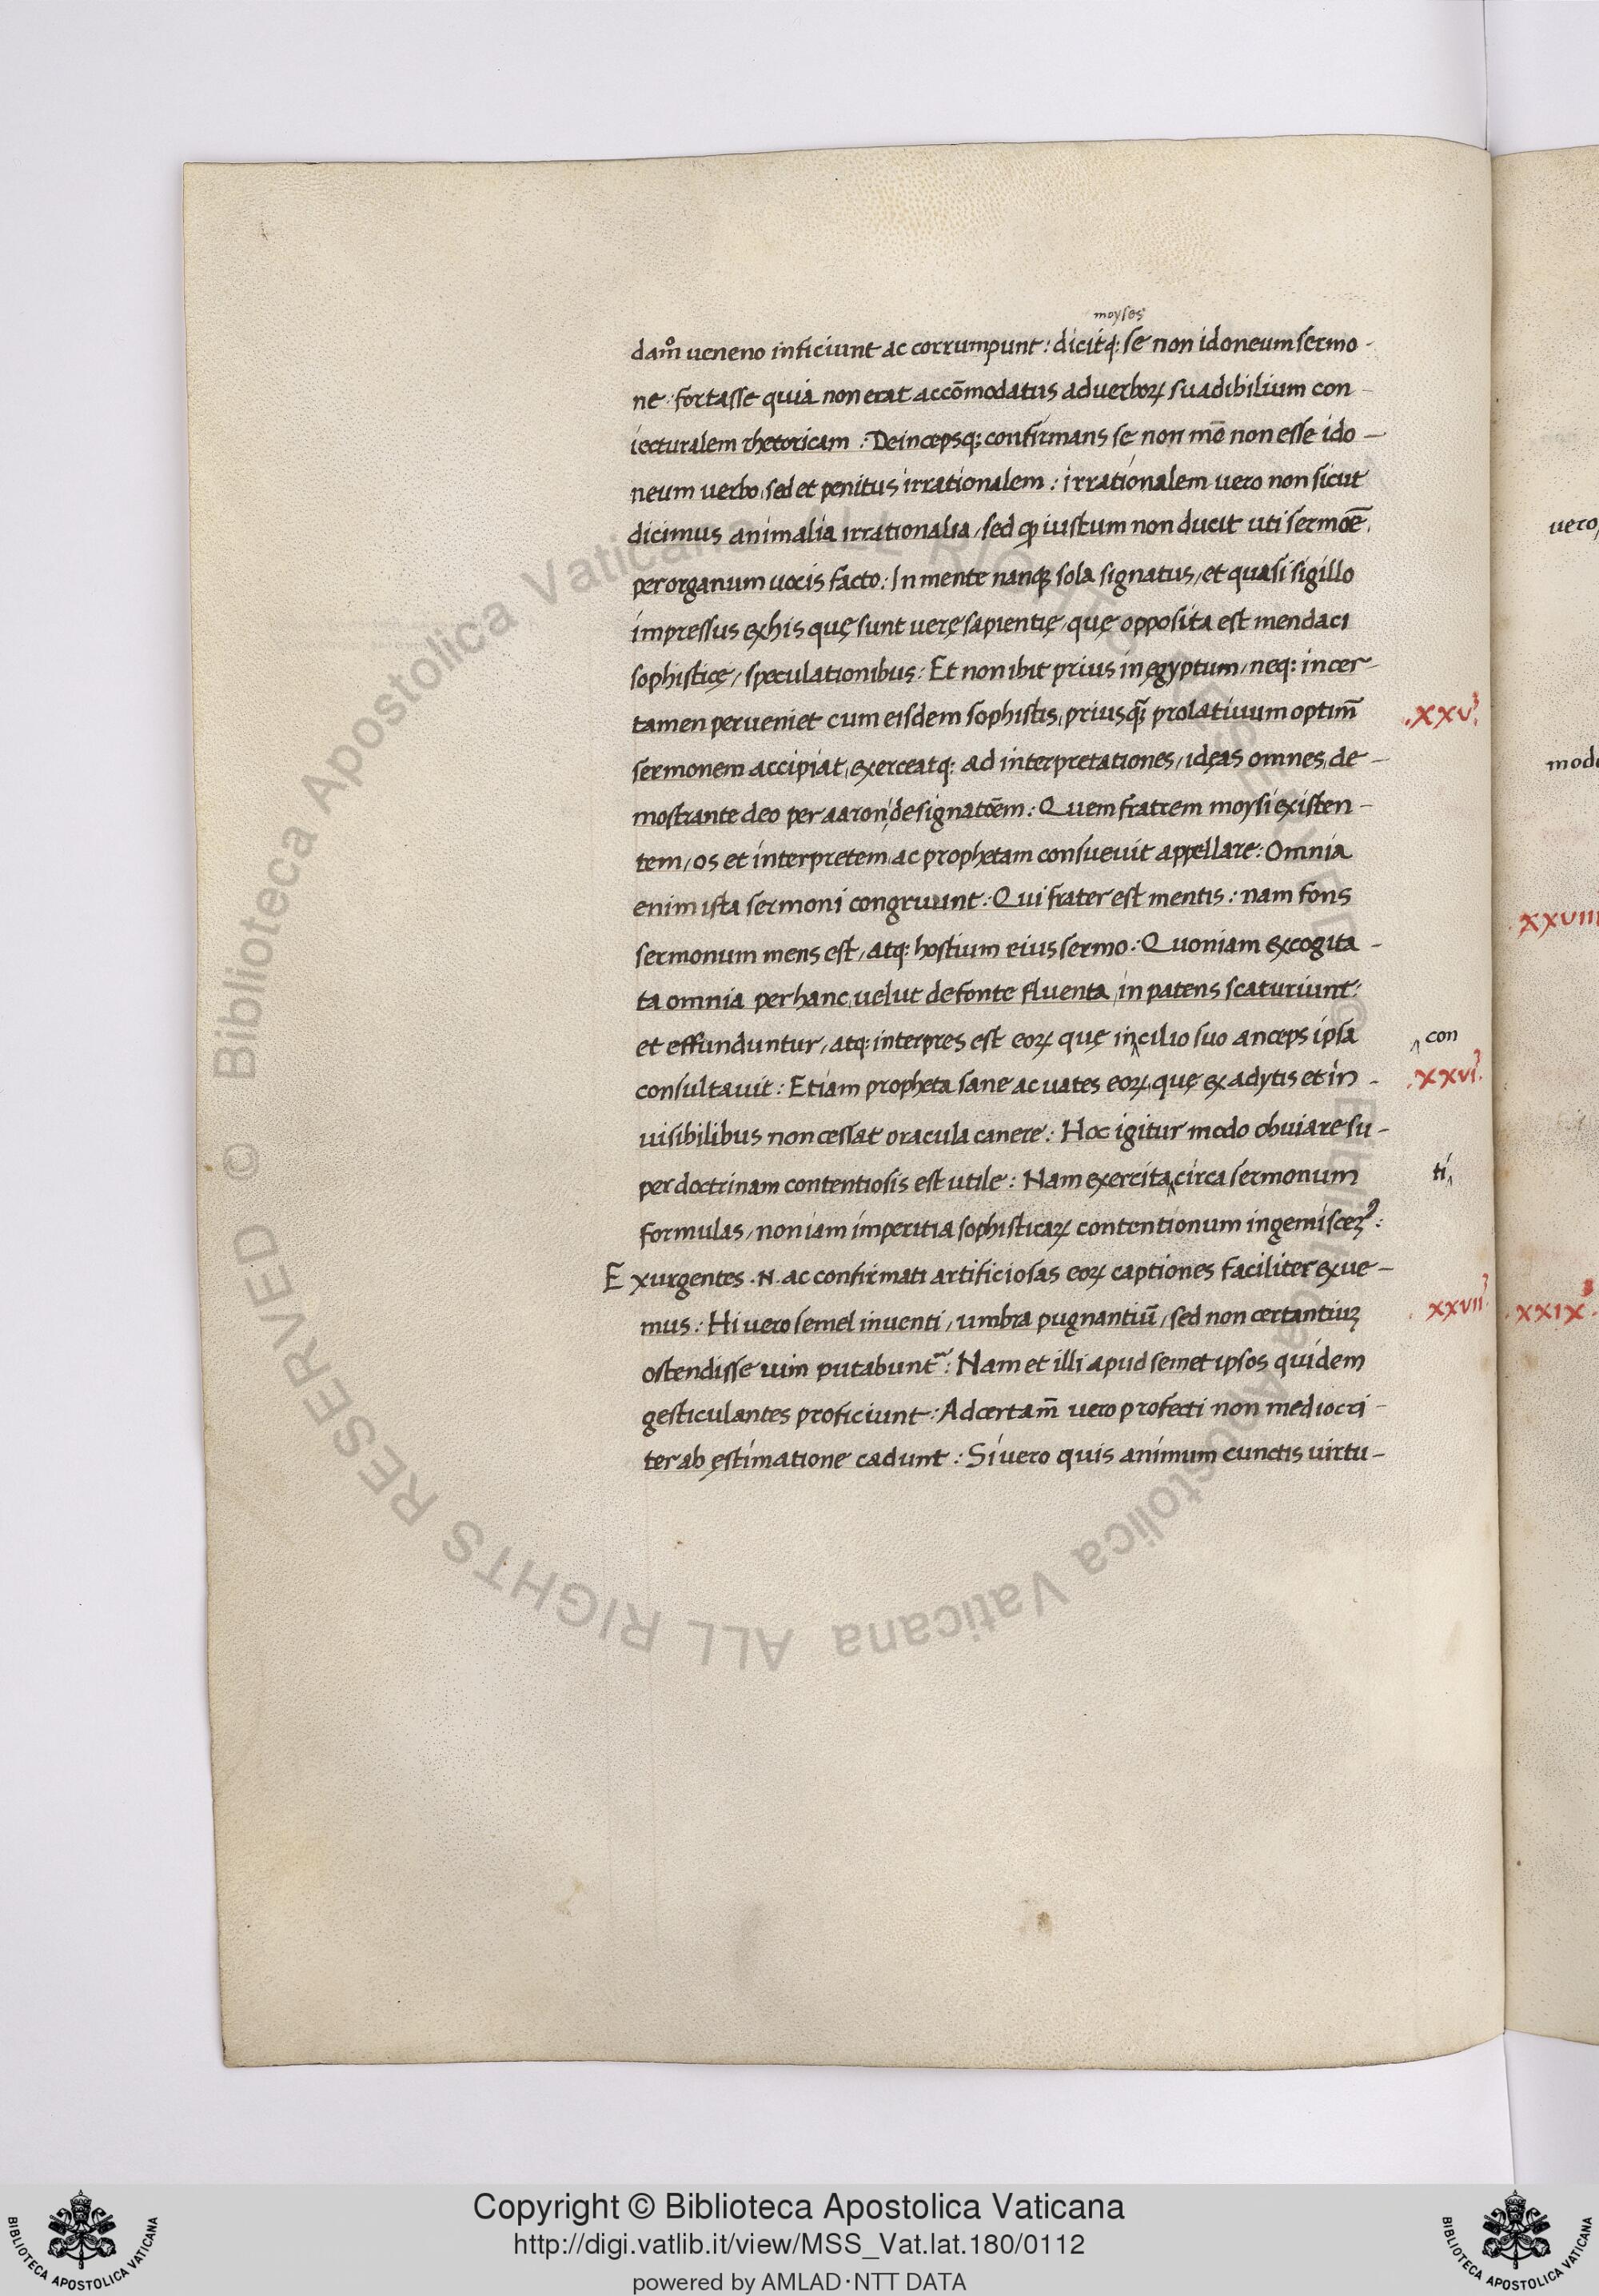 moyses
damº ueneno inficiunt ac corrumpunt: dicitq: se non idoneum sermo-
ne: fortasse quia non erat accōmodatus ad uerboꝝ suadibilium con-
iecturalem rhetoricam: Deincepsq: confirmans se non mō non esse ido-
neum uerbo, sed et penitus irrationalem: irrationalem uero non sicut
dicimus animalia irrationalia, sed ꝙ iustum non ducit uti sermōe,
per organum uocis facto: In mente nanq; sola signatus, et quasi sigillo
impressus ex his quę sunt uerę sapientię, quę opposita est mendaci
sophisticę, speculationibus: Et non ibit prius in ęgyptum, neq: in cer-
tamen perueniet cum eisdem sophistis, priusq̃; prolatiuum optim̄
sermonem accipiat, exerceatq: ad interpretationes, idęas omnes, de-
mostrante deo per aaron, designatōem: Quem fratrem moysi existen-
tem, os et interpretem, ac prophetam consueuit appellare: Omnia
enim ista sermoni congruunt: Qui frater est mentis: nam fons
sermonum mens est, atq: hostium eius sermo: Quoniam excogita-
ta omnia per hanc, uelut de fonte fluenta, in patens scaturiunt:
et effunduntur, atq: interpres est eoꝝ quę in‸cilio suo anceps ipsa
consultauit: Etiam propheta sane ac uates eoꝝ, quę ex adytis et in-
uisibilibus non cessat oracula canere: Hoc igitur modo obuiare su-
per doctrinam contentiosis est utile: Nam exercita‸ circa sermonum
formulas, non iam imperitia sophisticaꝝ contentionum ingemiscemꝰ:
Exurgentes .N. ac confirmati artificiosas eoꝝ captiones faciliter exue-
mus: Hi uero semel inuenti, umbra pugnantiū, sed non certantiuꝫ
ostendisse uim putabunt᷑: Nam et illi apud semet ipsos quidem
gesticulantes proficiunt: Ad certam̄ uero profecti non mediocri-
ter ab ęstimatione cadunt: Si uero quis animum cunctis uirtu-
.xxv.
‸con
.xxvi.
ti‸
.xxvii.
uero,
xxviii
.xxix.
Biblioteca Apostolica Vaticana ALL RIGHTS RESERVED ©
Copyright © Biblioteca Apostolica Vaticana
http://digi.vatlib.it/view/MSS_Vat.lat.180/0112
powered by AMLAD·NTT DATA
BIBLIOTECA APOSTOLICA VATICANA
BIBLIOTECA APOSTOLICA VATICANA